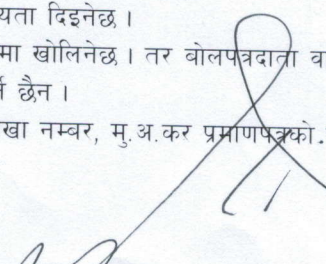 यता दिइनेछ ।
मा खोलिनेछ । तर बोलपत्रदाता व
छैन ।
खा नम्बर, मु.अ.कर प्रमाणपत्रको.